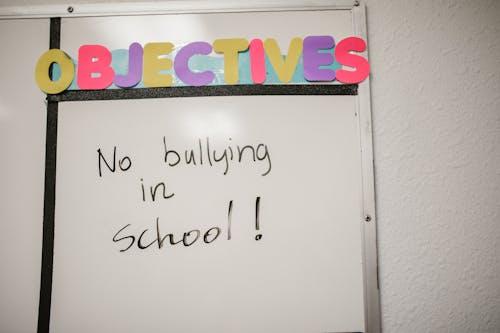 OBJECTIVES
No bullying
in
School!